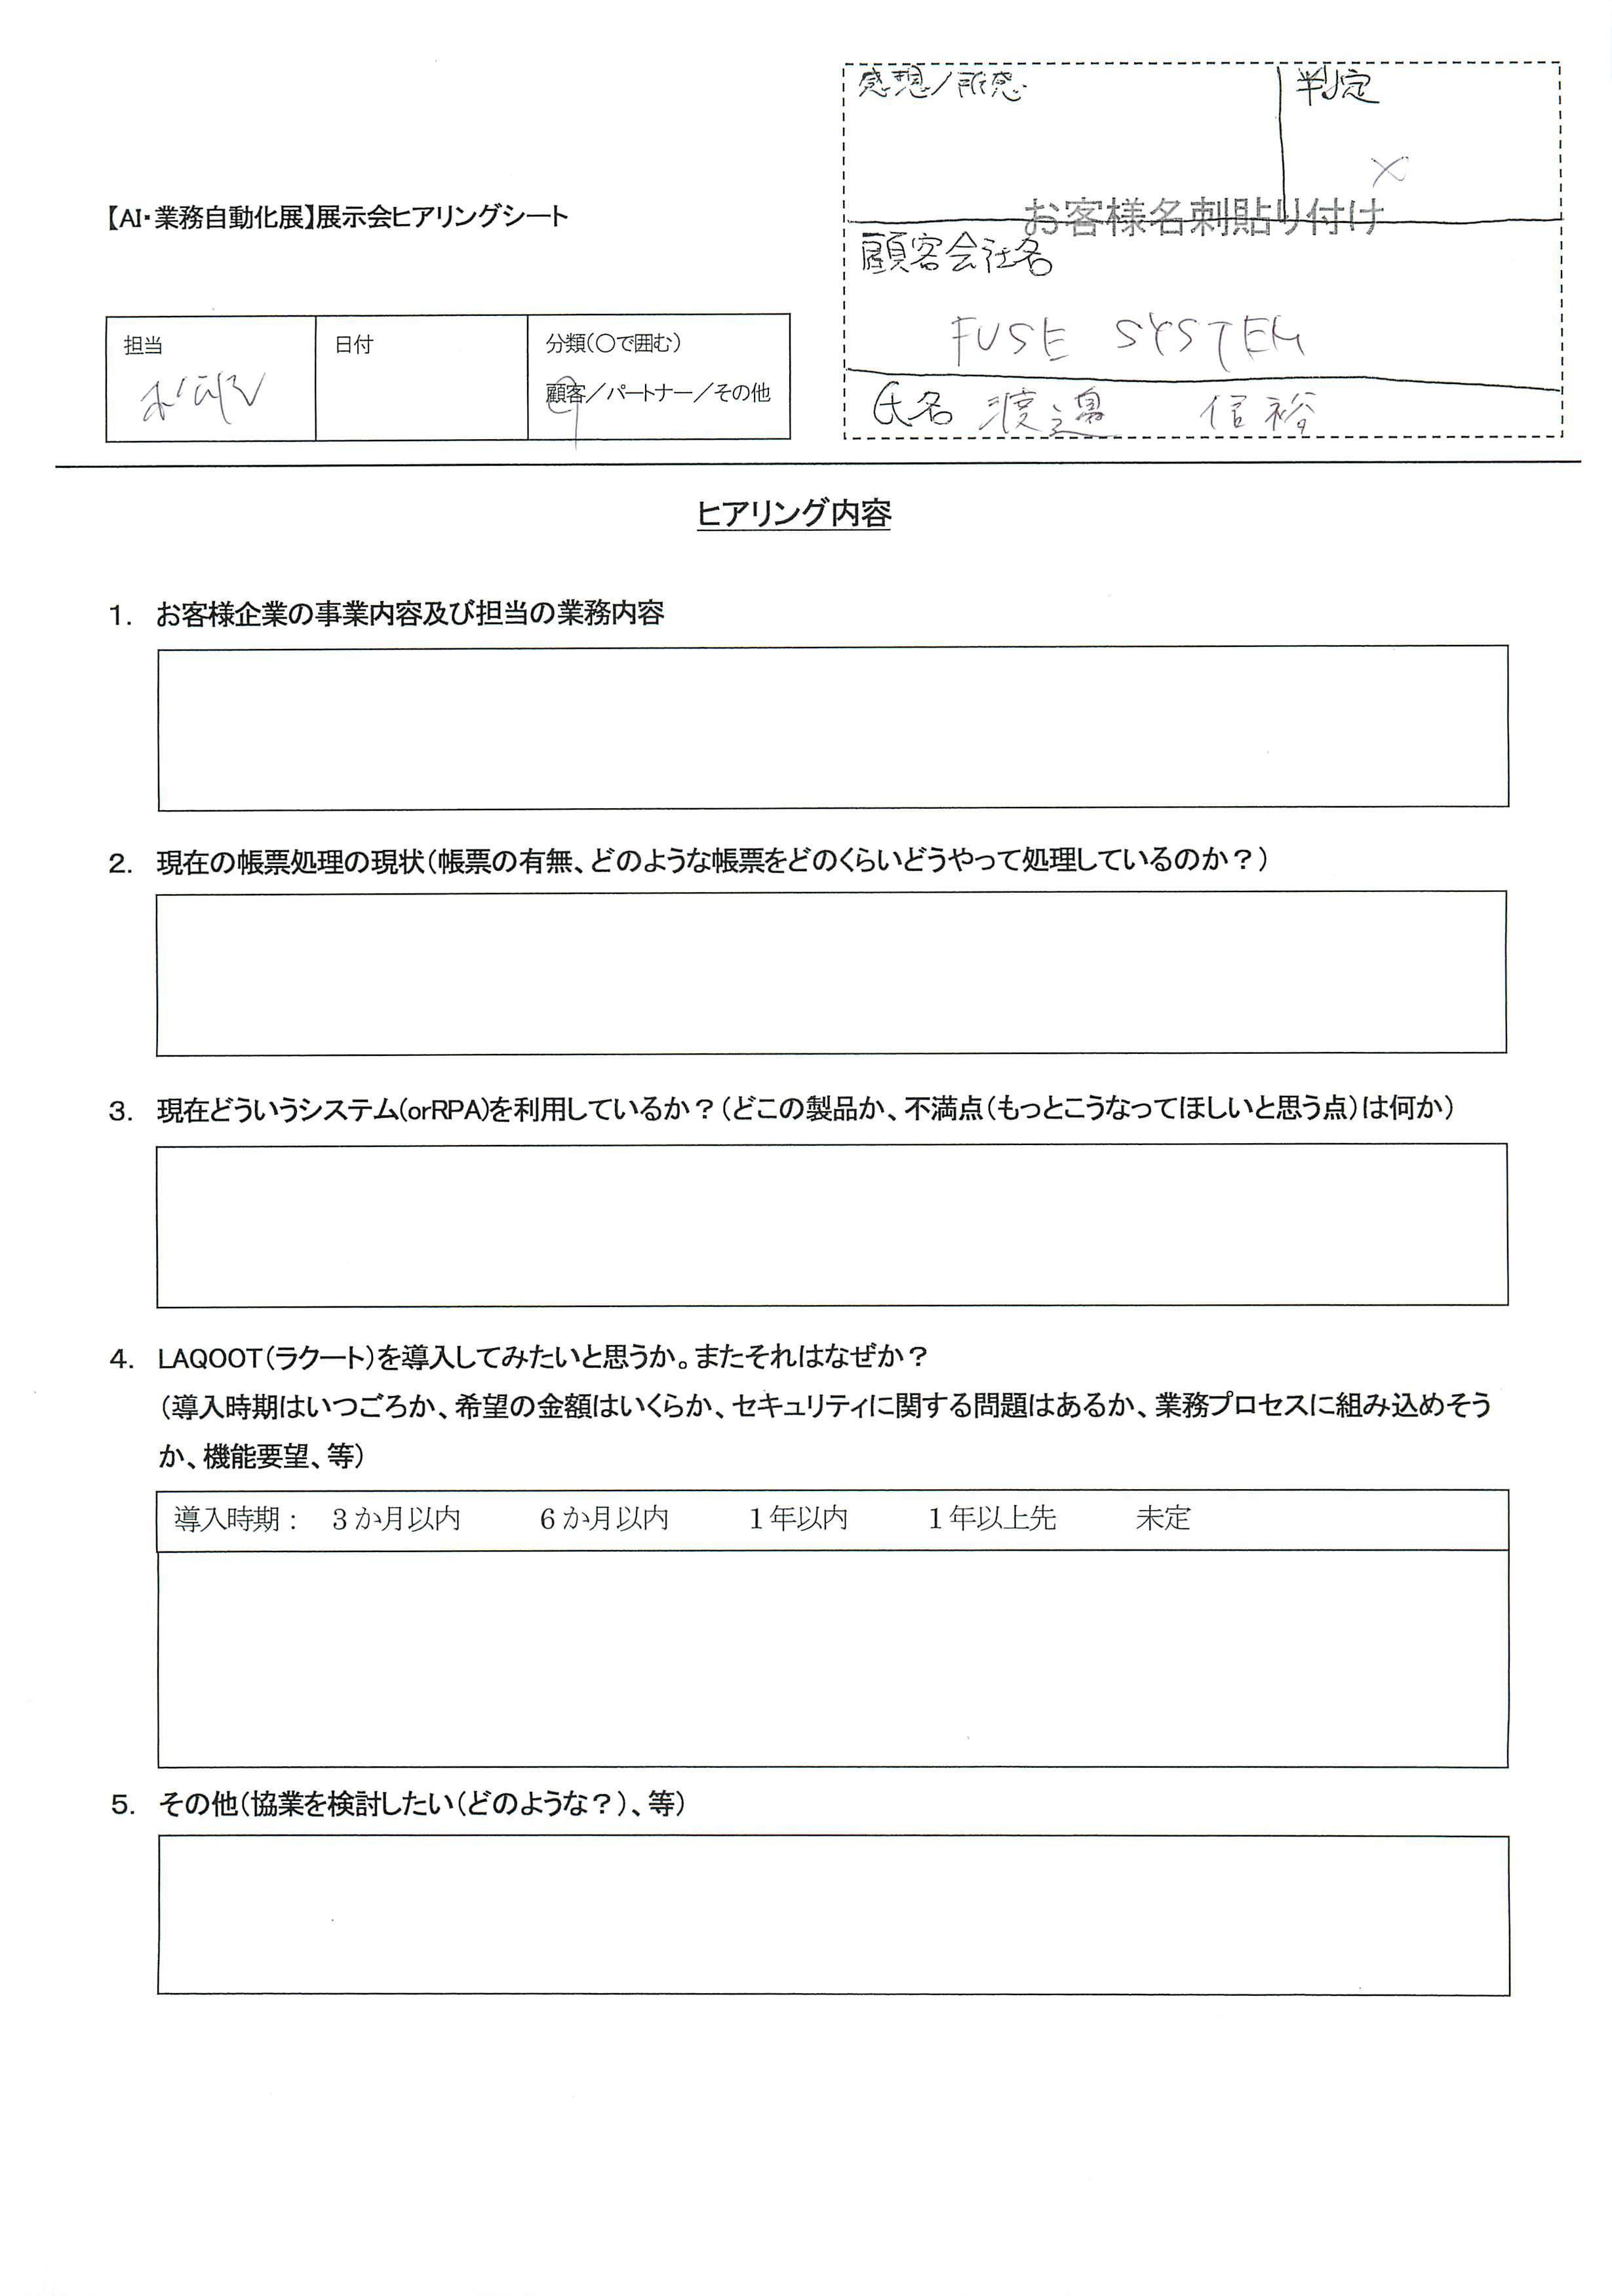 感想／所感
判定
×
【AI・業務自動化展】展示会ヒアリングシート
お客様名刺貼り付け
顧客会社名
FUSE SYSTEM
氏名 渡邉 信裕
担当
日付
分類(○で囲む)
顧客／パートナー／その他
ヒアリング内容
1. お客様企業の事業内容及び担当の業務内容
2. 現在の帳票処理の現状（帳票の有無、どのような帳票をどのくらいどうやって処理しているのか？）
3. 現在どういうシステム(orRPA)を利用しているか？（どこの製品か、不満点（もっとこうなってほしいと思う点）は何か）
4. LAQOOT（ラクート）を導入してみたいと思うか。またそれはなぜか？
（導入時期はいつごろか、希望の金額はいくらか、セキュリティに関する問題はあるか、業務プロセスに組み込めそう
か、機能要望、等）
導入時期： ３か月以内 ６か月以内 １年以内 １年以上先 未定
5. その他（協業を検討したい（どのような？）、等）